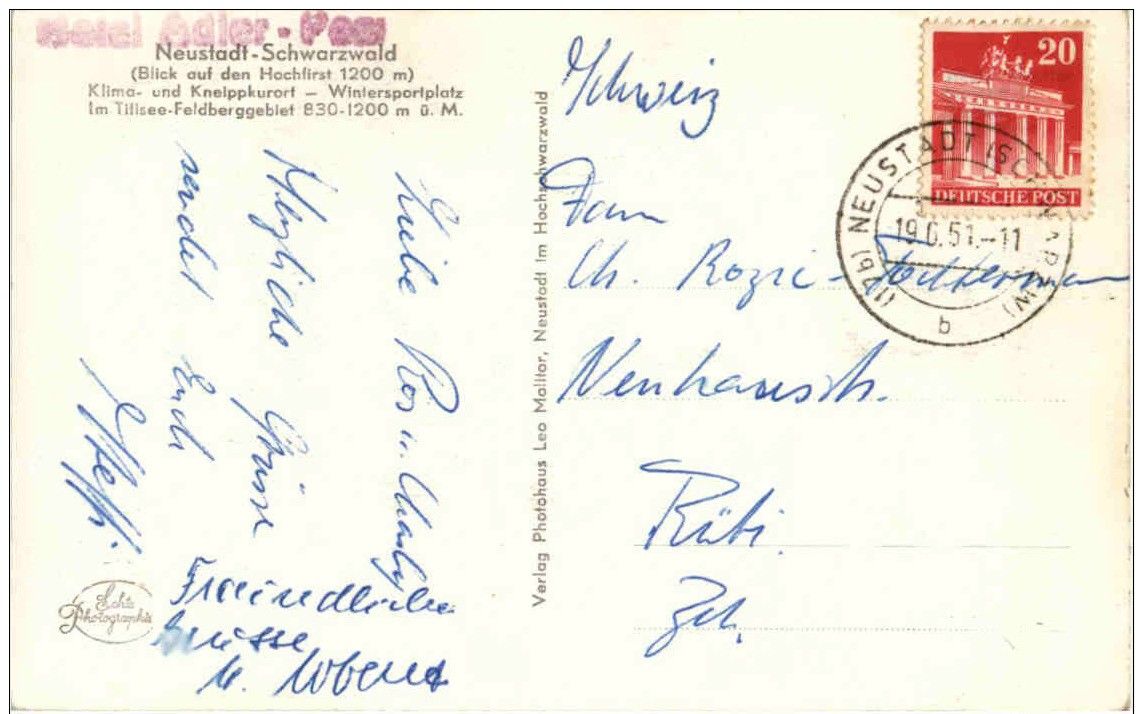 Hotel Adler-Post
Neustadt-Schwarzwald
(Blick auf den Hochfirst 1200 m)
Klima- und Kneippkurort — Wintersportplatz
im Titisee-Feldberggebiet 830-1200 m ü. M.
Liebe Rös u. Charly
Herzliche Grüsse
sendet Euch
Steffi.
Freundlichen
Grüsse
Echte
Photographie
Verlag Photohaus Leo Molitor, Neustadt im Hochschwarzwald
20
DEUTSCHE POST
(17b) NEUSTADT (SCHWARZW)
19.6.51.-11
b
Schweiz
Frau
Ch.
Neuhausstr.
Rüti.
Zch.